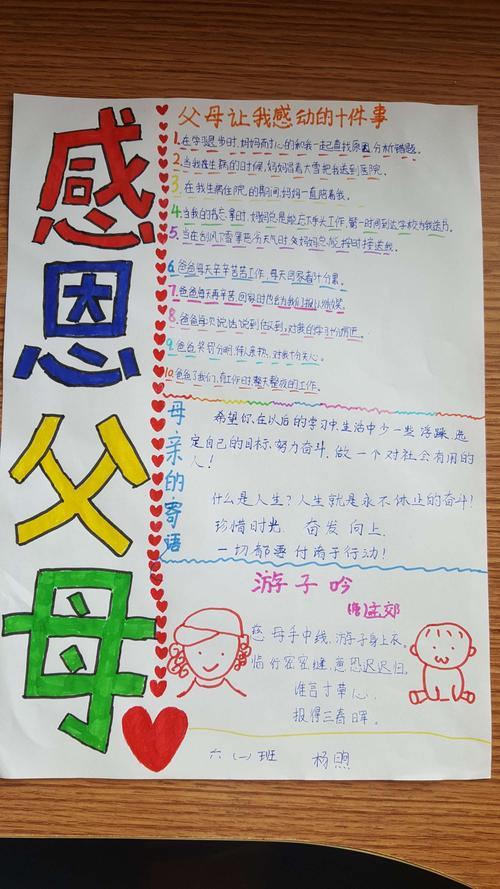 感恩父母
父母让我感动的十件事
1.在学习退步时,妈妈耐心的和我一起查找原因分析错题。
2.当我在生病的时候,妈妈冒着大雪把我送到医院。
3.在我生病住院的期间妈妈一直陪着我。
4.当我的忘拿时,妈妈总是能放下手头工作,第一时间到达学校为我送
5.当在刮风下雪暴恶劣天气时,妈妈总能按时接送我。
6.爸爸每天辛辛苦苦工作,每天回家看十分累。
7.爸爸每天再辛苦,回家时也会为我们报以微笑。
8.爸爸每次说话说到做到,对我的学习
9.爸爸奖罚分明,待人亲热,对我十分关心。
10.爸爸了我们,在工作时整天整夜的工作。
母亲的寄语
希望你,在以后的学习中,生活中少一些浮躁,选
定自己的目标,努力奋斗,做一个对社会有用的
人!
什么是人生?人生就是永不休止的奋斗!
珍惜时光 奋发向上,
一切都要付诸于行动!
游子吟
(唐)孟郊
慈母手中线,游子身上衣。
临行密密缝,意恐迟迟归。
谁言寸草心,
报得三春晖。
六(一)班 杨煦